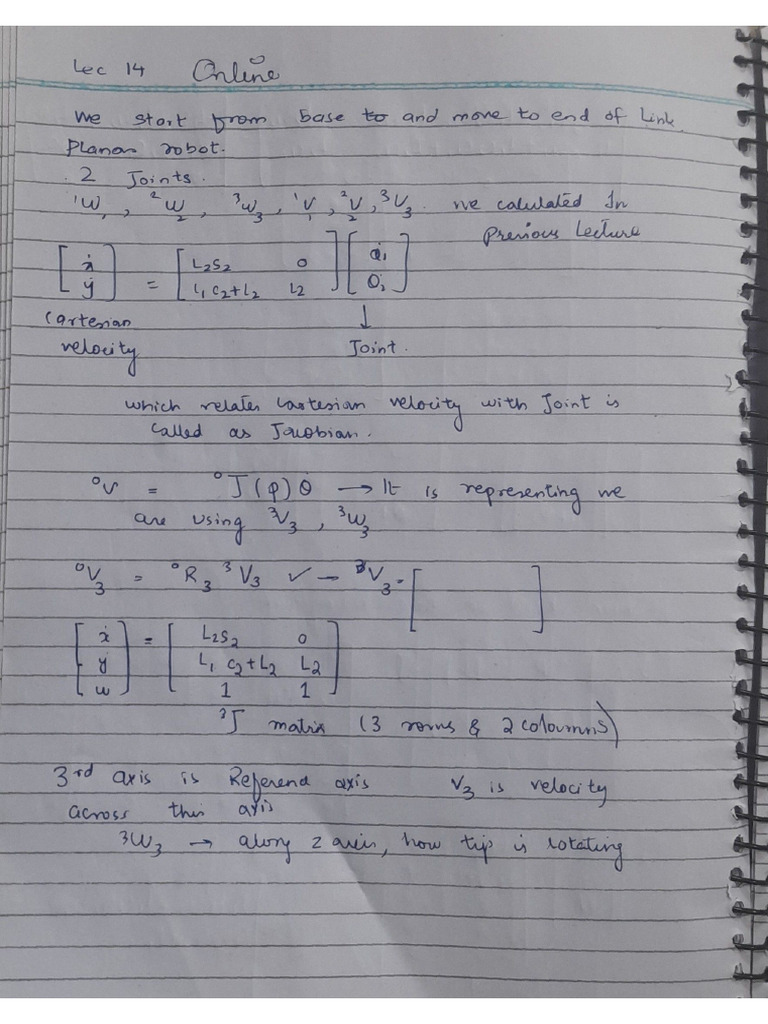 Lec 14 Online
we start from base to and move to end of Link
Planar robot.
. 2 Joints.
¹W₁, ²W₂, ³W₃, ¹V₁, ²V₂, ³V₃. we calculated In
previous Lecture
[ẋ ẏ] = [L₂S₂ 0; L₁C₂+L₂ L₂] [θ̇₁ θ̇₂]
Cartesian ↓
velocity Joint.
which relates Cartesian velocity with Joint is
called as Jacobian.
⁰v = ⁰J(φ)θ̇ → It is representing we
are using ³V₃, ³W₃
⁰V₃ = ⁰R₃ ³V₃ ✓ – ³V₃ = [ ]
[ẋ ẏ w] = [L₂S₂ 0; L₁ C₂+L₂ L₂; 1 1]
³J matrix (3 rows & 2 coloumns)
3rd axis is Referend axis V₃ is velocity
across this axis
³W₃ → along z axis, how tip is rotating